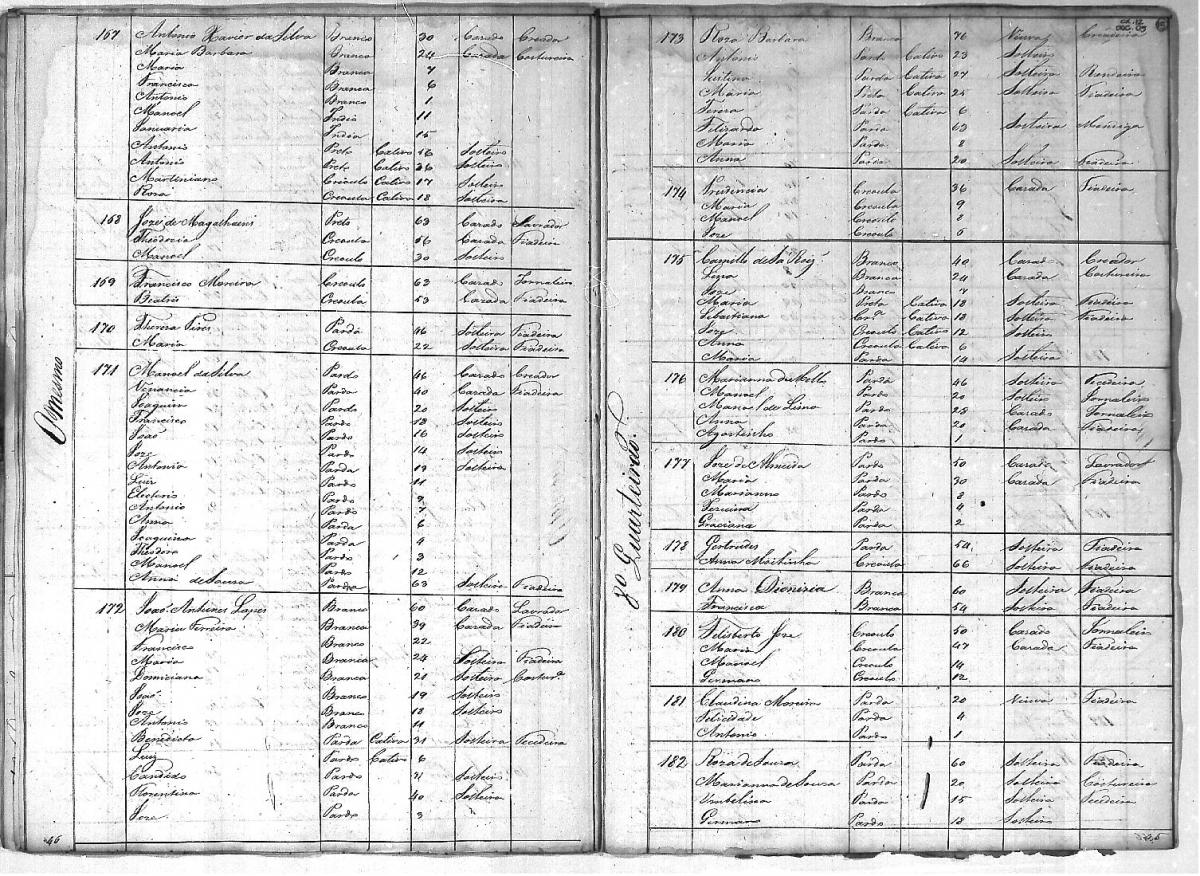 167 Antonio Xavier da Silva Branco 30 Cazado Creador
Maria Barbara Branca 24 Cazada Costureira
Maria Branca 7
Francisca Branca 6
Antonio Branco 1
Manoel India 11
Januaria India 15
Antonio Preto Cativo 16 Solteiro
Antonio Preto Cativo 36 Solteiro
Martiniano Creoulo Cativo 17 Solteiro
Roza Creoula Cativa 18 Solteira
168 Joze de Magalhaens Preto 63 Cazado Lavrador
Theodozia Creoula 56 Cazada Fiadeira
Manoel Creoulo 30 Solteiro
169 Francisco Moreira Creoulo 63 Cazado Jornaleiro
Beatris Creoula 53 Cazada Fiadeira
170 Thereza Pires Parda 46 Solteira Fiadeira
Maria Creoula 22 Solteira Fiadeira
Omesmo
171 Manoel da Silva Pardo 46 Cazado Creador
Venancia Parda 40 Cazada Fiadeira
Joaquim Pardo 20 Solteiro
Francisco Pardo 18 Solteiro
João Pardo 16 Solteiro
Joze Pardo 14 Solteiro
Antonia Parda 19 Solteira
Luiz Pardo 11
Pardo 9
Antonio Pardo 7
Anna Parda 6
Joaquina Parda 4
Theodoro Pardo 3
Manoel Pardo 12
Anna de Souza Parda 63 Solteira Fiadeira
172 João Antunes Lopes Branco 60 Cazado Lavrador
Maria Ferreira Branca 39 Cazada Fiadeira
Francisco Branco 22
Maria Branca 24 Solteira Fiadeira
Domiciana Branca 21 Solteira Costura
João Branco 19 Solteiro
Joze Branco 18 Solteiro
Antonio Branco 11
Benedicta Parda Cativa 31 Solteira Tecedeira
Luiz Pardo Cativo 6
Candido Pardo 21 Solteiro
Florentina Parda 40 Solteira
Joze Pardo 3
46
173 Roza Barbara Branca 76 Viuva Creadeira
Antonio Pardo Cativo 23 Solteiro
Justina Parda Cativa 27 Solteira Rendeira
Maria Preta Cativa 25 Solteira Fiadeira
Tereza Parda Cativa 6
Parda 63 Solteira
Maria Parda 8
Anna Parda 20 Solteira Fiadeira
174 Prudencia Creoula 36 Cazada Fiadeira
Maria Creoula 9
Manoel Creoulo 8
Joze Creoulo 5
175 Branco 40 Cazado Creador
Branca 24 Cazada Costureira
Joze Branco 4
Maria Preta Cativa 18 Solteira Fiadeira
Sebastiana Cativa 18 Solteira Fiadeira
Joze Creoulo Cativo 12 Solteiro
Anna Creoula Cativa 6
Maria Parda 14 Solteira
8º Quarteirão
176 Marianna de Mello Parda 46 Solteira Tecedeira
Manoel Pardo 20 Solteiro Jornaleiro
Manoel Pardo 28 Cazado Jornaleiro
Anna Parda 20 Cazada Fiadeira
Agostinho Pardo 1
177 Joze de Almeida Pardo 50 Cazado Lavrador
Maria Parda 30 Cazada Fiadeira
Marianno Pardo 8
Parda 4
Graciana Parda 2
178 Gertrudes Parda 54 Solteira Fiadeira
Anna Creoula 66 Solteira Fiadeira
179 Anna Dionizia Branca 60 Solteira Fiadeira
Francisca Branca 54 Solteira Fiadeira
180 Felisberto Joze Creoulo 50 Cazado Jornaleiro
Maria Creoula 47 Cazada Fiadeira
Manoel Creoulo 14
Germano Creoulo 12
181 Claudina Moreira Parda 20 Viuva Fiadeira
Felicidade Parda 4
Antonio Pardo 1
182 Roza de Souza Parda 60 Solteira Fiadeira
Marianna de Souza Parda 20 Solteira Costureira
Umbelina Parda 15 Solteira Tecedeira
Germano Pardo 18 Solteiro